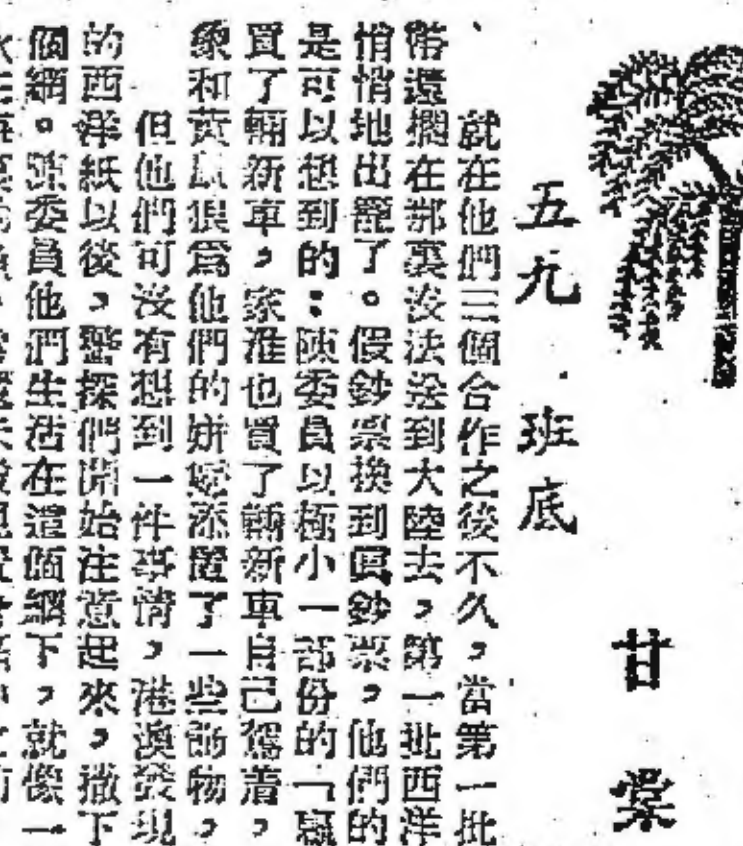 甘棠
五九 班底
就在他們三個合作之後不久，當第一批
幣還擱在那裏沒法送到大陸去，第一批西洋
悄悄地出籠了。假鈔票換到眞鈔票，他們的
是可以想到的：陳委員以極小一部份的「贏
買了輛新車，家淮也買了輛新車自己駕着，
象和黃鼠狼爲他們的姘婦添置了一些飾物，
但他們可沒有想到一件事情，港澳發現
的西洋紙以後，警探們開始注意起來，撒下
個網。陳委員他們生活在這個網下，就像一